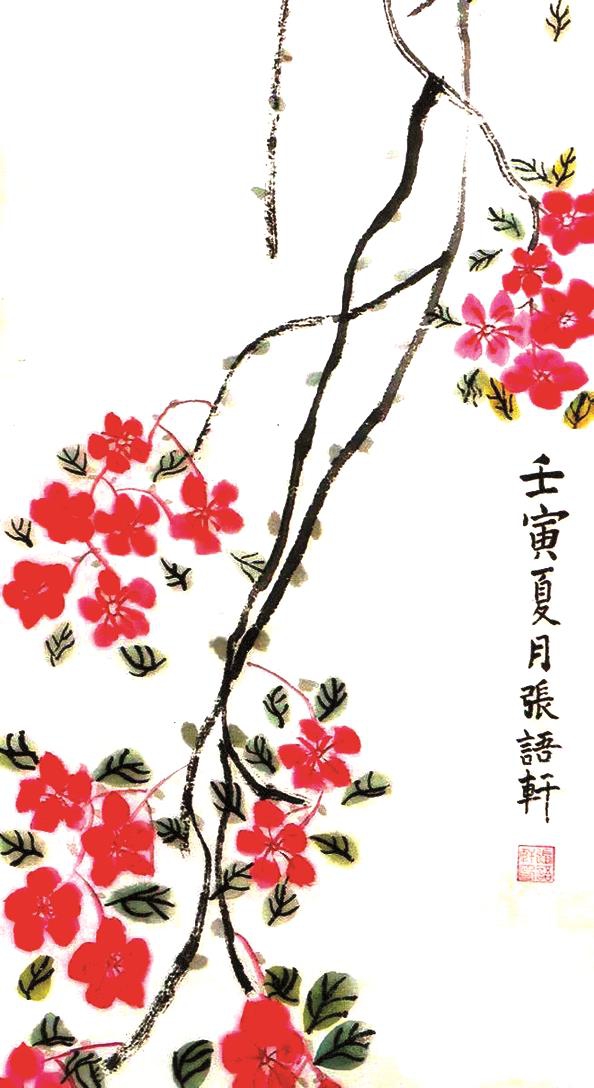 壬寅夏月張語軒